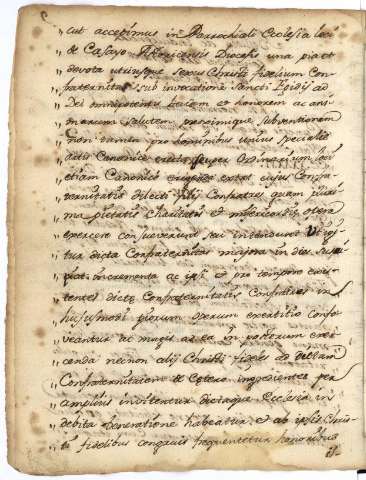 cut accepimus in Parrochiali Ecclesia loci
de Casayo Astoricensis Diocesis una pia et
devota utriusque sexus Christi fidelium Con
fraternitas sub invocatione Sancti Egidis ad
Dei omnipotentis laudem et honorem ac ani
marum salutem proximique subventionem
non tamen pro hominibus unius specialis
artis Canonice per Ordinarium loci
etiam Canonice erecta extat cujus Confra
ternitatis dilecti filij Confratres quam pluri
ma pietatis charitatis et misericordie opera
exercere consueverunt seu intendunt Ut
tur dicta Confraternitas majora in dies susci
piat incrementa ac ipsi et pro tempore exis
tentes dicte Confraternitatis Confratres in
hujusmodi piorum operum exercitio confo
veantur ac magis ac in posterum exer
cenda necnon alij Christi fideles ad dictam
Confraternitatem de cetero ingrediendum per
amplius invitentur dictaque Ecclesia in
debita veneratione habeatur et ab ipsis Chris
ti fidelibus congruis frequentetur honoribus